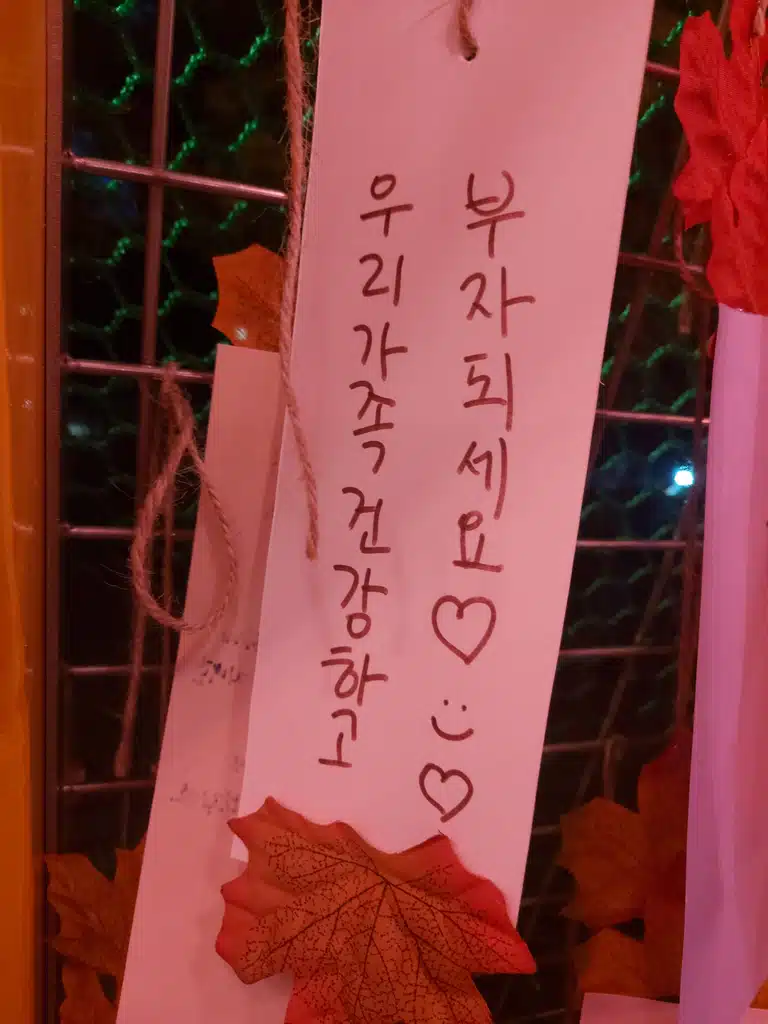 우리가족건강하고
부자되세요♡
:)
♡